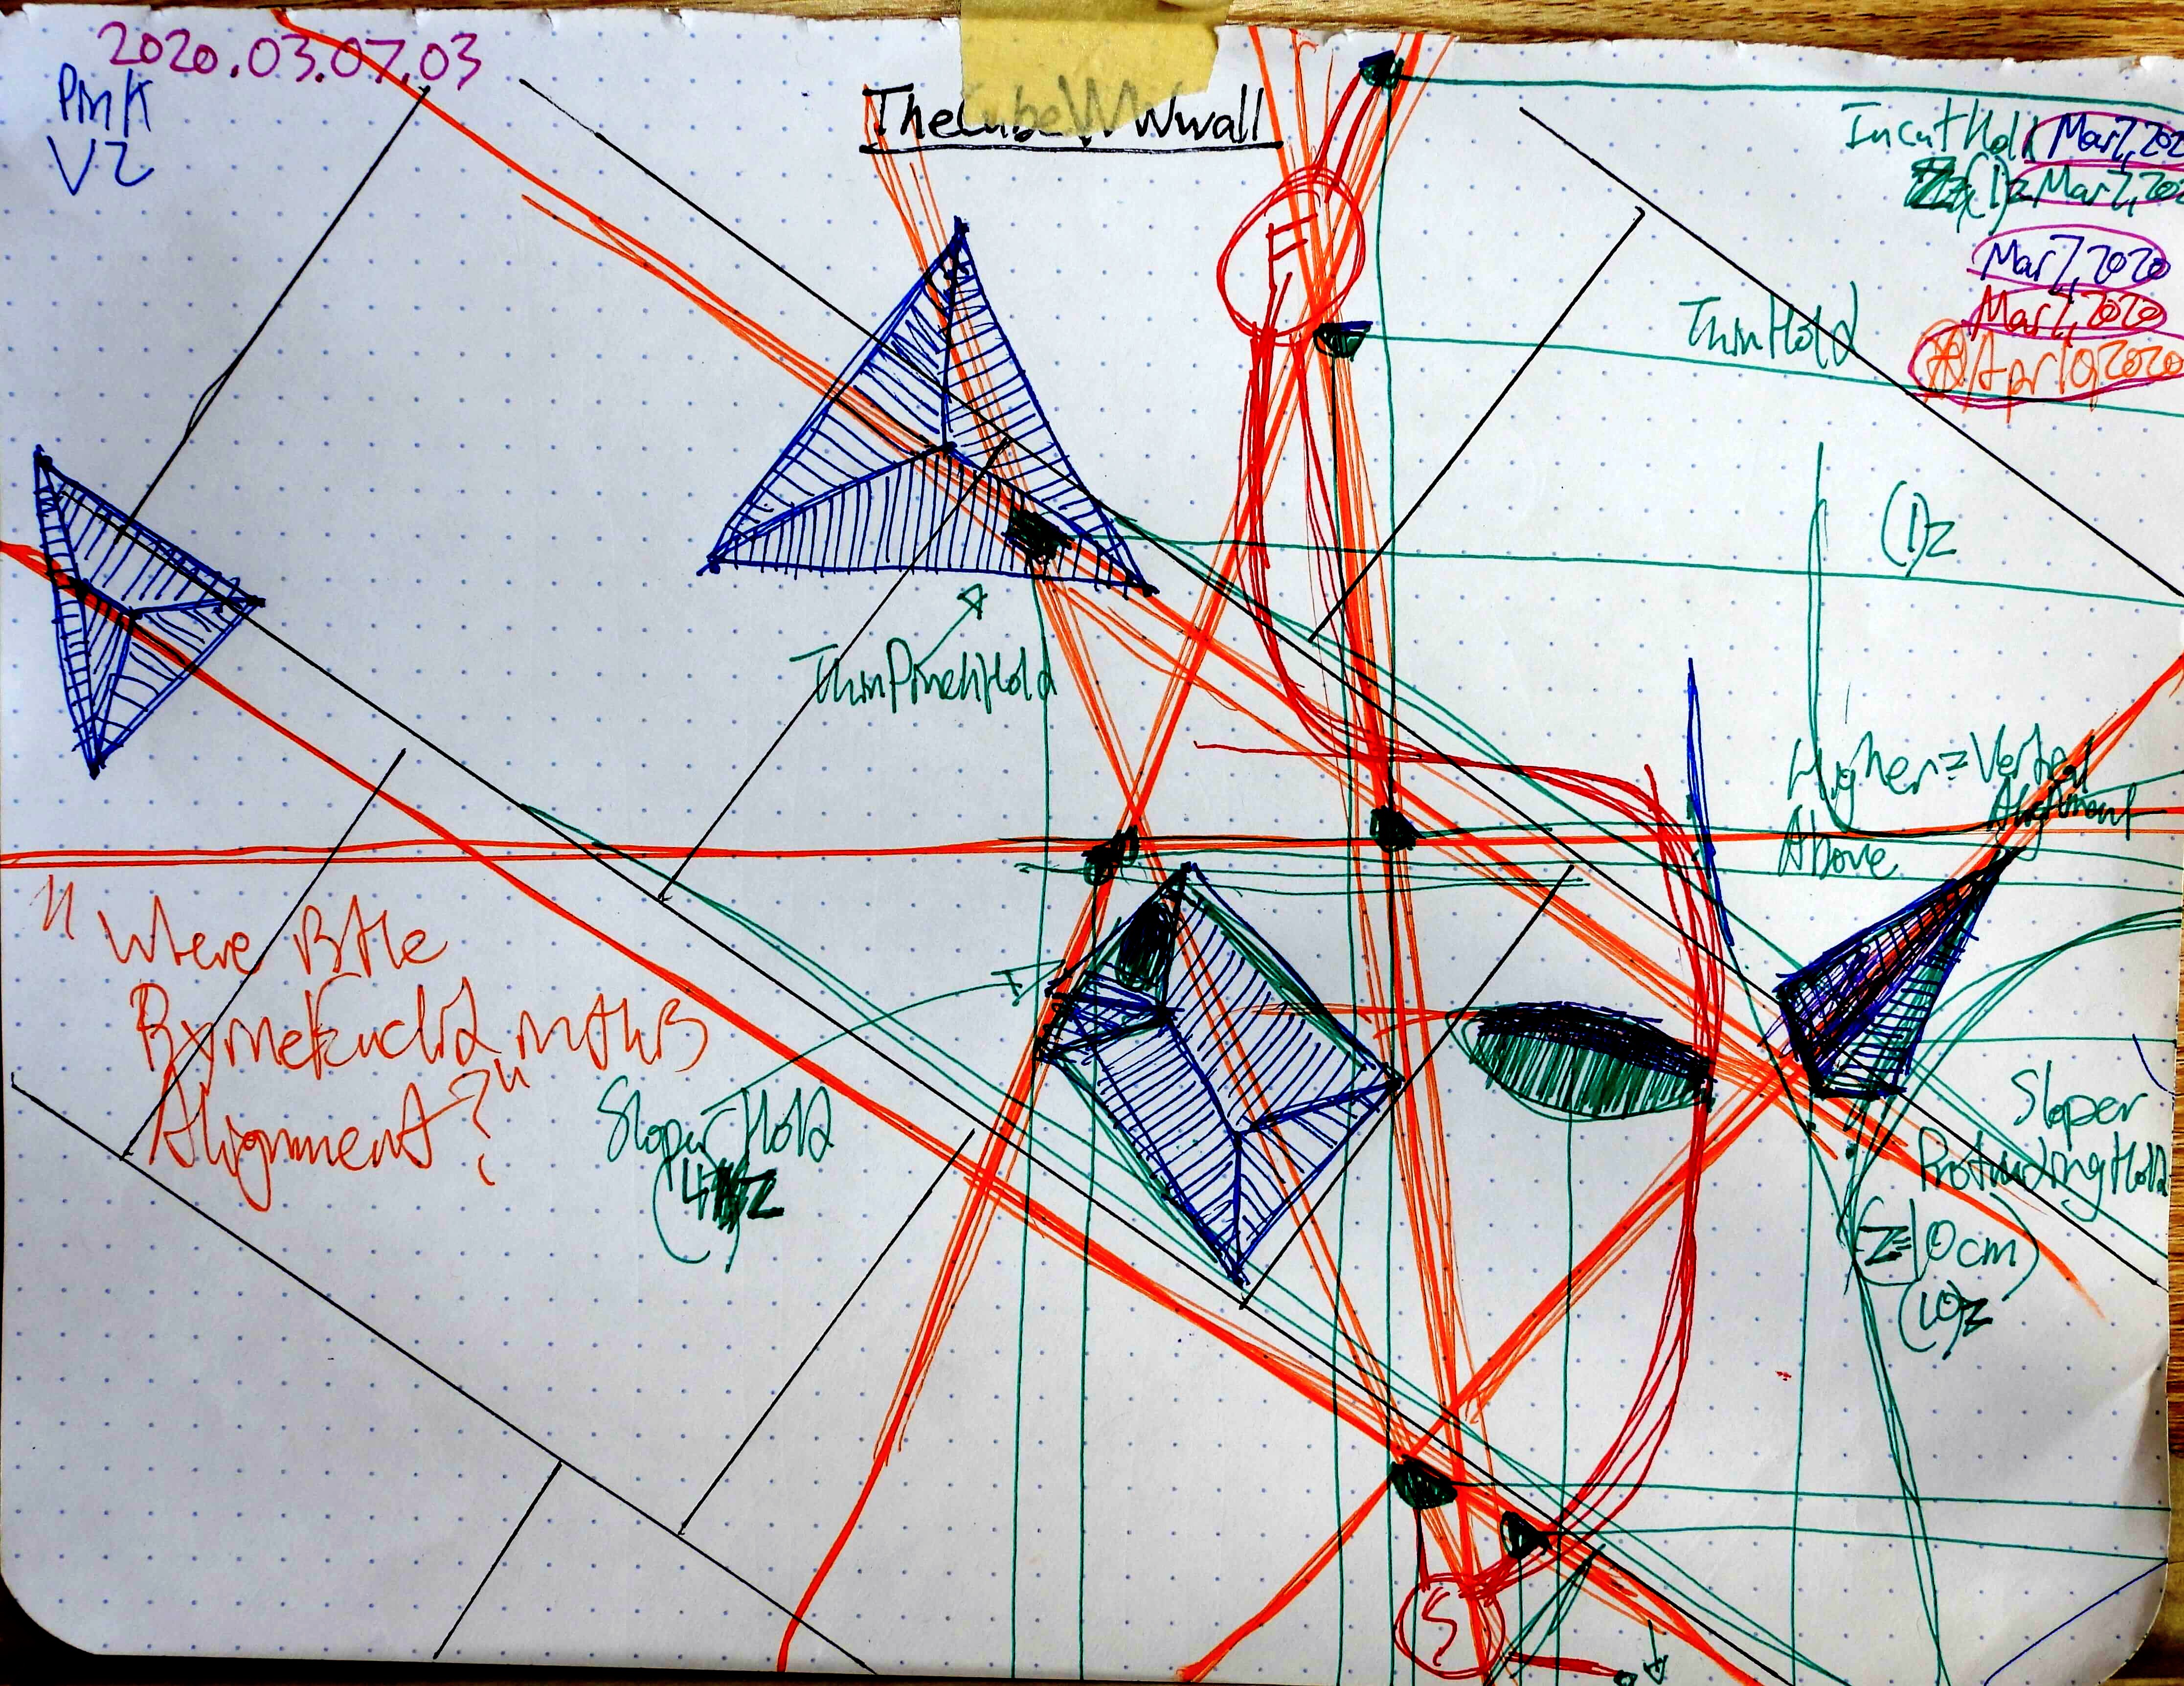 2020.03.07.03
Pink
V2
TheCubeWWwall
IncutHold Mar7,202
(1)z Mar7,202
Mar7,2020
Mar7,2020
Apr19,2020
F
ThinHold
(1)z
ThinPinchHold
Higher=Vertical
Alignment
Above
"Where is the
ByrneEuclid in this
Alignment?"
Sloper-Hold
Sloper
ProtrudingHold
(Z=10cm)
(10)z
S